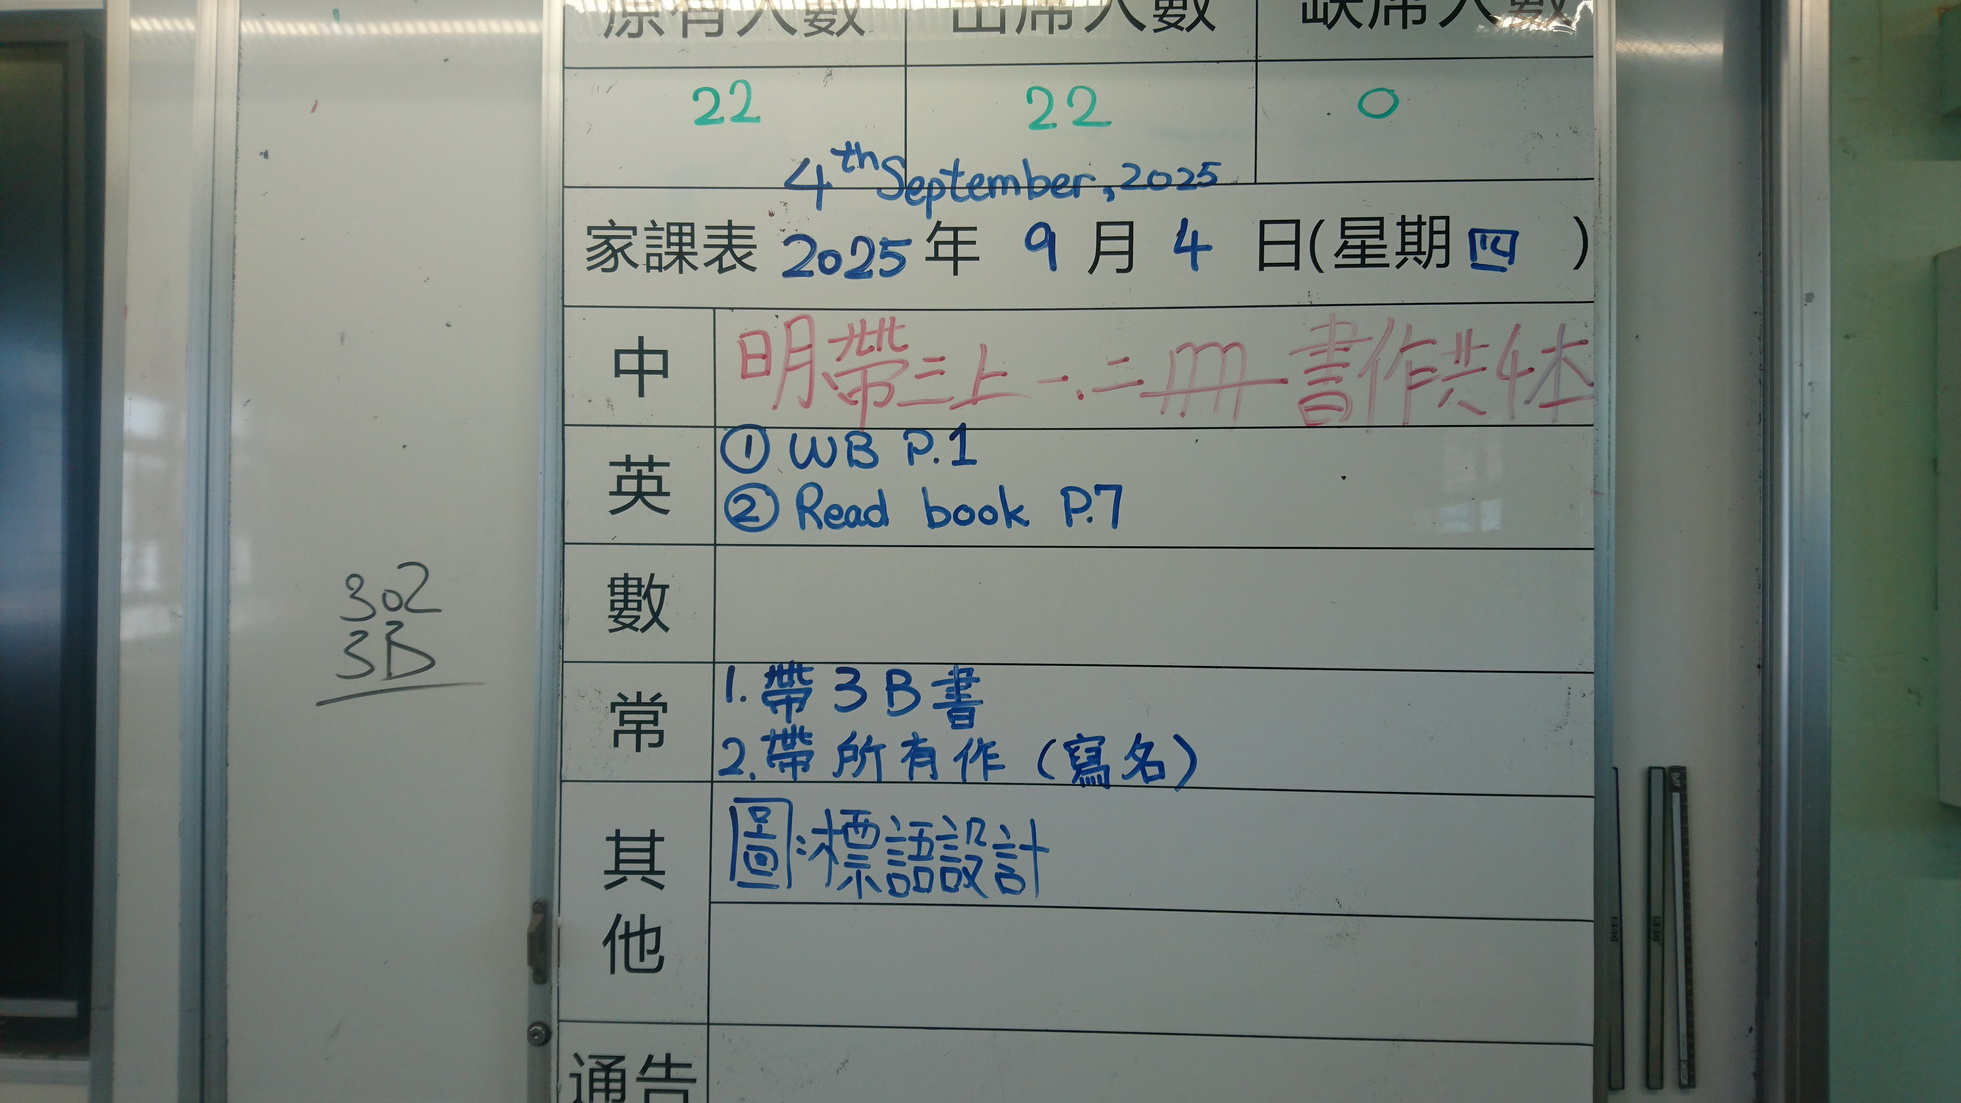 原有人數 出席人數 缺席人數
22 22 0
4th September, 2025
家課表 2025年 9月 4日(星期四)
中 明帶三上一.二冊書作共4本
英 ① WB P.1
② Read book P.7
數
常 1. 帶3B書
2. 帶所有作(寫名)
其他 圖:標語設計
通告
302
3B